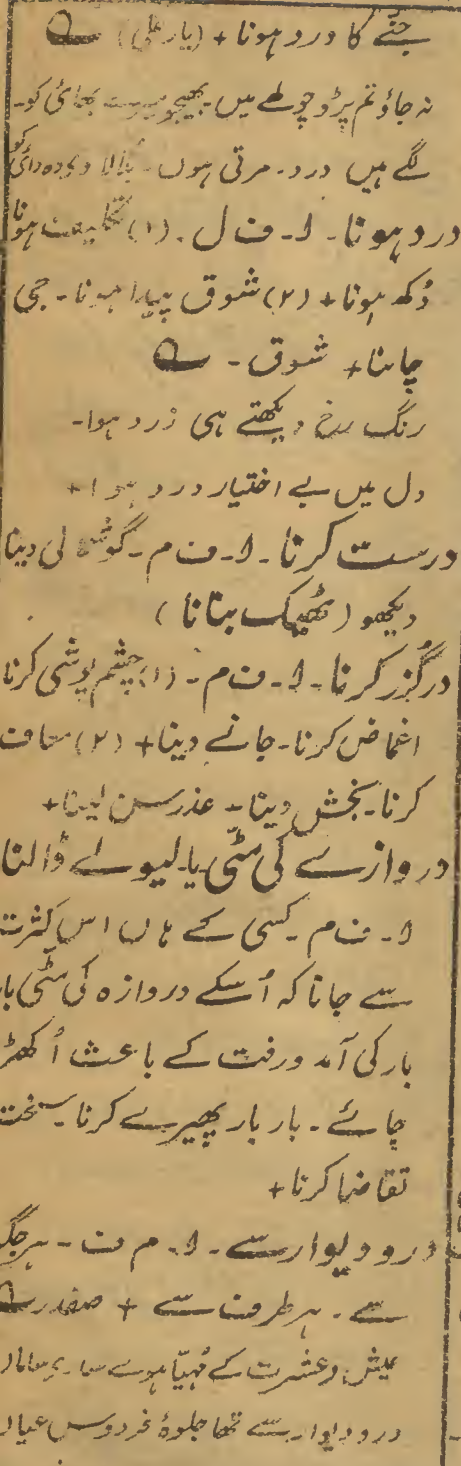 جننے کا درد ہونا + (یار علی) ؎
نہ جاؤ تم پڑو چولھے میں بھیجو میرے بھائی کو۔
لگے ہیں درد۔ مرتی ہوں۔ بُلالا دو دائی کو
درد ہونا۔ ا۔ ف ل۔ (۱) تکلیف ہونا
دُکھ ہونا + (۲) شوق پیدا ہونا۔ جی
چاہنا + شوق۔ ؎
رنگ رخ دیکھتے ہی زرد ہوا۔
دل میں بے اختیار درد ہوا +
درست کرنا۔ ا۔ ف م۔ گوشمالی دینا
دیکھو (ٹھیک بنانا)
درگزر کرنا۔ ا۔ ف م۔ (۱) چشم پوشی کرنا
اغماض کرنا۔ جانے دینا + (۲) معاف
کرنا۔ بخش دینا۔ عذر سن لینا +
دروازے کی مٹّی یا لیولے ڈالنا
ا۔ ف م۔ کسی کے ہاں اس کثرت
سے جانا کہ اُسکے دروازہ کی مٹّی بار
بار کی آمد ورفت کے باعث اُکھڑ
جائے۔ بار بار پھیرے کرنا۔ سخت
تقاضا کرنا +
در و دیوار سے۔ ا۔ م ف۔ ہر جگہ
سے۔ ہر طرف سے + صفدر ؎
عیش و عشرت کے مُہیّا ہوے سارے ساماں
در و دیوار سے تھا جلوۂ فردوس عیاں